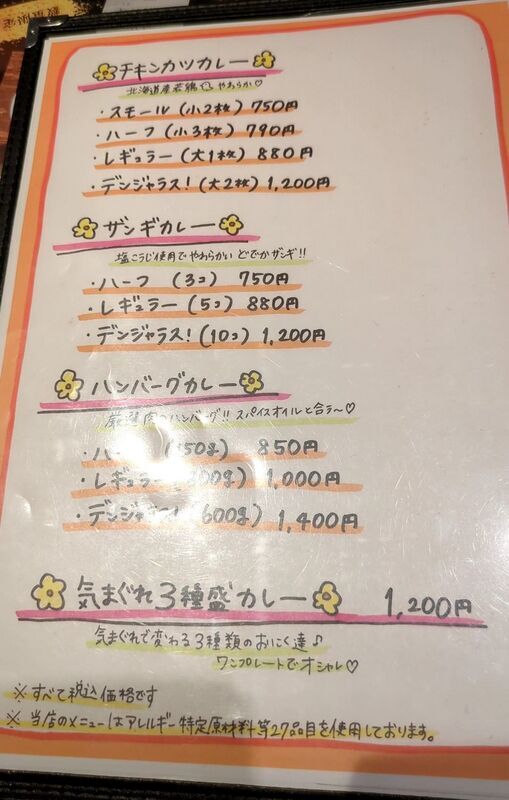 チキンカツカレー
北海道産若鶏 やわらか♡
・スモール(小2枚) 750円
・ハーフ(小3枚) 790円
・レギュラー(大1枚) 880円
・デンジャラス!(大2枚) 1,200円
ザンギカレー
塩こうじ使用でやわらかい どでかザンギ!!
・ハーフ (3コ) 750円
・レギュラー(5コ) 880円
・デンジャラス!(10コ) 1,200円
ハンバーグカレー
厳選肉のハンバーグ!! スパイスオイルと合う〜♡
・ハーフ 850円
・レギュラー 1,000円
・デンジャラス! (600g) 1,400円
気まぐれ3種盛カレー 1,200円
気まぐれで変わる3種類のおにく達♪
ワンプレートでオシャレ♡
※すべて税込価格です
※当店のメニューはアレルギー特定原材料等27品目を使用しております。